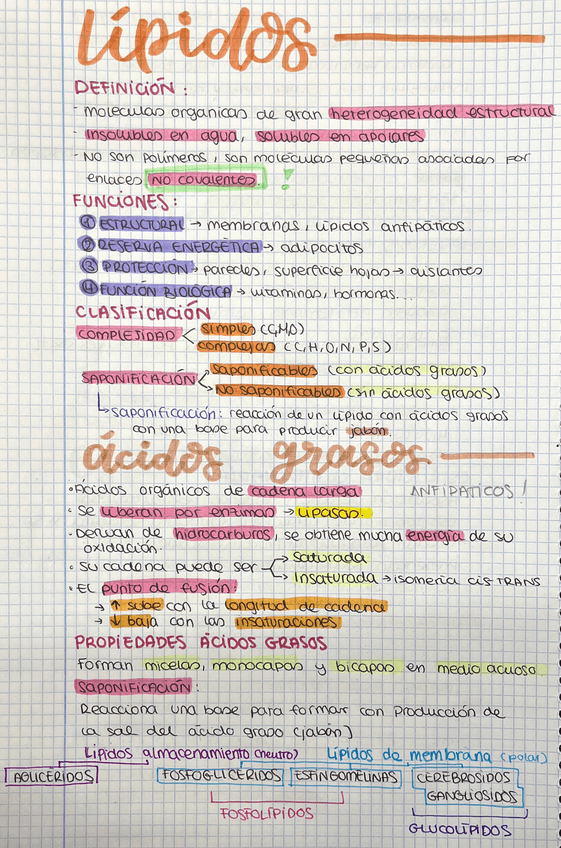 lípidos
DEFINICIÓN:
- moléculas orgánicas de gran heterogeneidad estructural
- insolubles en agua, solubles en apolares
- NO son polímeros, son moléculas pequeñas asociadas por
enlaces no covalentes. !
FUNCIONES:
① ESTRUCTURAL → membranas, lípidos anfipáticos
② RESERVA ENERGÉTICA → adipocitos
③ PROTECCIÓN → paredes, superficie hojas → aislantes
④ FUNCIÓN BIOLÓGICA → vitaminas, hormonas...
CLASIFICACIÓN
COMPLEJIDAD < simples (C,H,O)
complejas (C,H,O,N,P,S)
SAPONIFICACIÓN < saponificables (con ácidos grasos)
NO saponificables (sin ácidos grasos)
↳ saponificación: reacción de un lípido con ácidos grasos
con una base para producir jabón.
ácidos grasos
• Ácidos orgánicos de cadena larga ANFIPATICOS!
• Se liberan por enzimas → lipasas.
• Derivan de hidrocarburos, se obtiene mucha energía de su
oxidación.
• Su cadena puede ser → saturada
→ insaturada → isomería cis TRANS
• El punto de fusión:
→ ↑ sube con la longitud de cadena
→ ↓ baja con las insaturaciones
PROPIEDADES ÁCIDOS GRASOS
Forman micelas, monocapas y bicapas en medio acuoso
SAPONIFICACIÓN:
Reacciona una base para formar con producción de
la sal del ácido graso (jabón)
Lípidos almacenamiento (neutro) Lípidos de membrana (polar)
AGLICÉRIDOS FOSFOGLICÉRIDOS ESFINGOMELINAS CEREBRÓSIDOS
GANGLIÓSIDOS
FOSFOLÍPIDOS
GLUCOLÍPIDOS